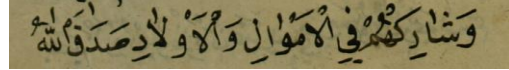 وَشَارِكْهُمْ فِي الْاَمْوَالِ وَالْاَوْلَادِ صَدَقَ اللّٰهُ